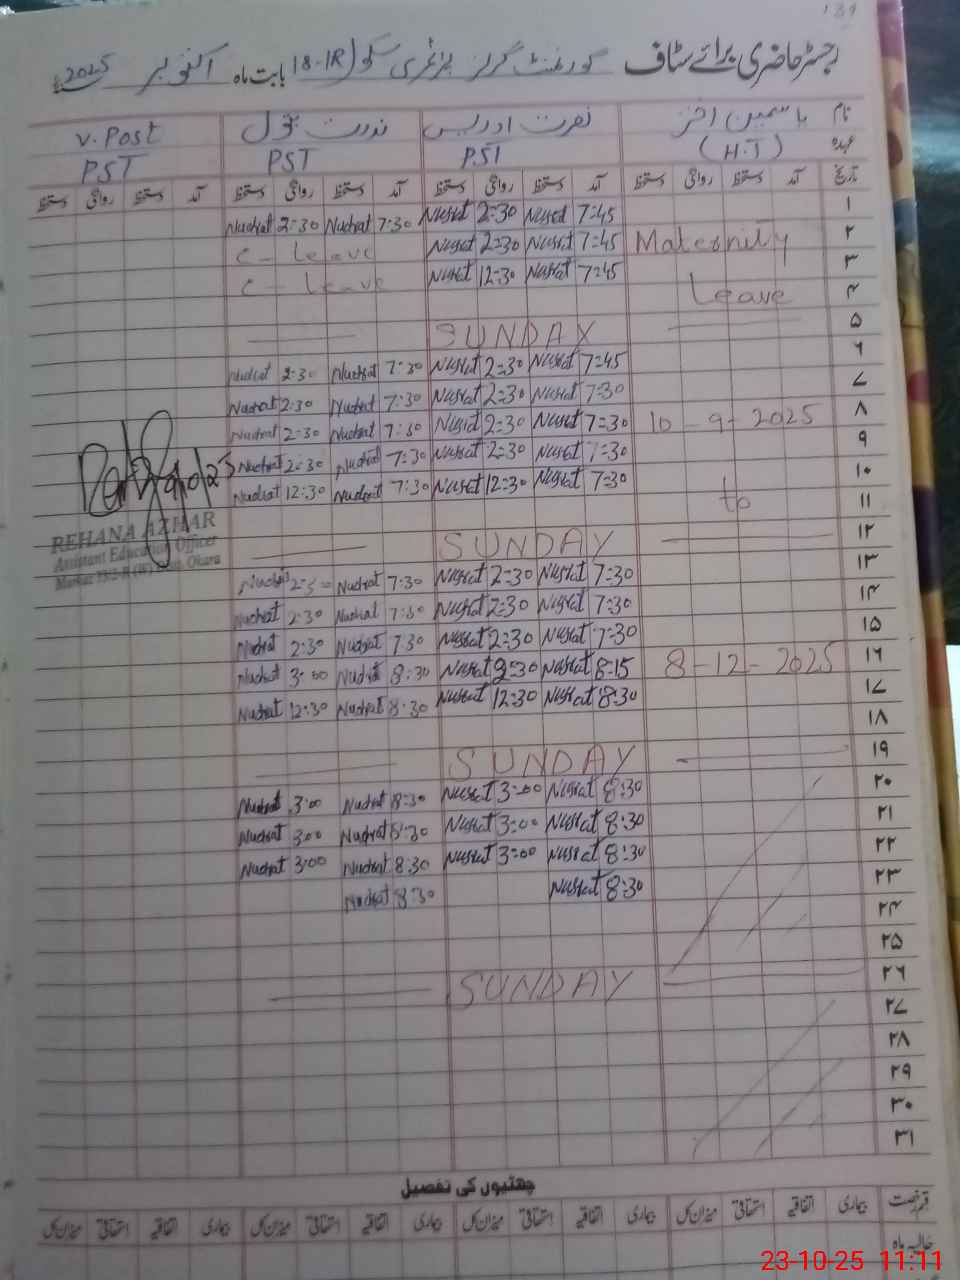 139
رجسٹر حاضری برائے سٹاف گورنمنٹ گرلز پرائمری سکول 18-1R بابت ماہ اکتوبر 2025ء
نام یاسمین اختر نصرت ادریس ندرت بتول V. Post
عہدہ (H.T) PST PST PST
تاریخ آمد دستخط روانگی دستخط آمد دستخط روانگی دستخط آمد دستخط روانگی دستخط آمد دستخط روانگی دستخط
۱ 7=45 Nusrat 2=30 Nusrat 7:30 Nudrat 2=30 Nudrat
۲ Maternity 7=45 Nusrat 2=30 Nusrat C - Leave
۳ 7=45 Nusrat 12=30 Nusrat C - Leave
۴ Leave
۵ SUNDAY
۶ 7=45 Nusrat 2=30 Nusrat 7:30 Nudrat 2:30 Nudrat
۷ 7=30 Nusrat 2=30 Nusrat 7:30 Nudrat 2:30 Nudrat
۸ 10-9-2025 7=30 Nusrat 2=30 Nusrat 7:30 Nudrat 2:30 Nudrat
۹ 7=30 Nusrat 2=30 Nusrat 7:30 Nudrat 2:30 Nudrat
۱۰ 7=30 Nusrat 12=30 Nusrat 7:30 Nudrat 12:30 Nudrat
۱۱ to
REHANA AZHAR
Assistant Education Officer
Okara
۱۲ SUNDAY
۱۳ 7=30 Nusrat 2=30 Nusrat 7:30 Nudrat 2:30 Nudrat
۱۴ 7=30 Nusrat 2=30 Nusrat 7:30 Nudrat 2:30 Nudrat
۱۵ 7=30 Nusrat 2=30 Nusrat 7:30 Nudrat 2:30 Nudrat
۱۶ 8-12-2025 8=15 Nusrat 2=30 Nusrat 8:30 Nudrat 3:00 Nudrat
۱۷ 8=30 Nusrat 12=30 Nusrat 8:30 Nudrat 12:30 Nudrat
۱۸
۱۹ SUNDAY
۲۰ 8:30 Nusrat 3:00 Nusrat 8:30 Nudrat 3:00 Nudrat
۲۱ 8:30 Nusrat 3:00 Nusrat 8:30 Nudrat 3:00 Nudrat
۲۲ 8:30 Nusrat 3:00 Nusrat 8:30 Nudrat 3:00 Nudrat
۲۳ 8:30 Nusrat 8:30 Nudrat
۲۴
۲۵
۲۶ SUNDAY
۲۷
۲۸
۲۹
۳۰
۳۱
چھٹیوں کی تفصیل
قسم رخصت بیماری اتفاقیہ استحقاقی میزان کل بیماری اتفاقیہ استحقاقی میزان کل بیماری اتفاقیہ استحقاقی میزان کل بیماری اتفاقیہ استحقاقی میزان کل
حالیہ ماہ
23-10-25 11:11